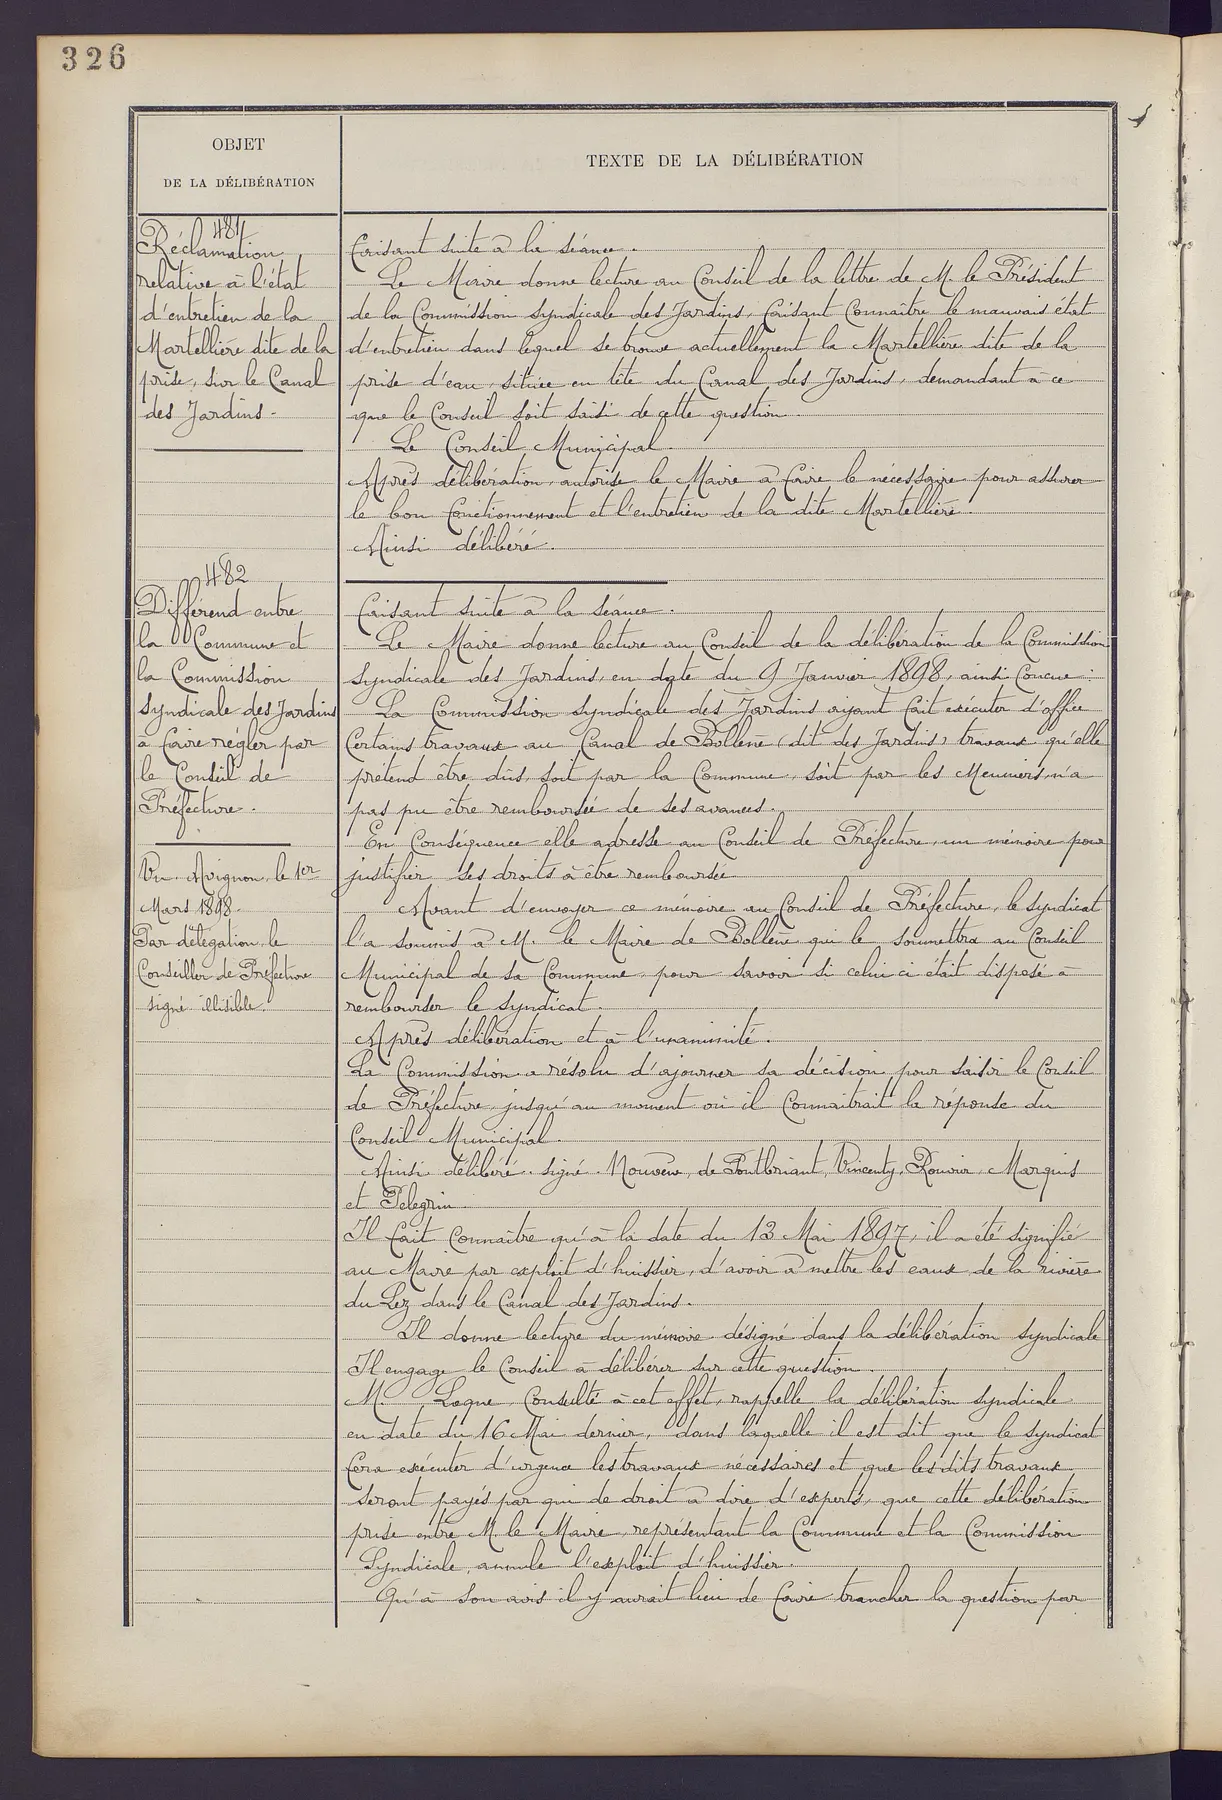 326
OBJET
DE LA DÉLIBÉRATION
TEXTE DE LA DÉLIBÉRATION
481
Réclamation
relative à l'état
d'entretien de la
Martellière dite de la
prise, sur le Canal
des Jardins.
Faisant suite à la séance.
Le Maire donne lecture au Conseil de la lettre de M. le Président
de la Commission syndicale des Jardins, faisant connaître le mauvais état
d'entretien dans lequel se trouve actuellement la Martellière dite de la
prise d'eau, située en tête du Canal des Jardins, demandant à ce
que le Conseil soit saisi de cette question.
Le Conseil Municipal.
Après délibération, autorise le Maire à faire le nécessaire pour assurer
le bon fonctionnement et l'entretien de la dite Martellière.
Ainsi délibéré.
482
Différend entre
la Commune et
la Commission
Syndicale des Jardins
à faire régler par
le Conseil de
Préfecture.
Vu. Avignon, le 1er
Mars 1898.
Par délégation, le
Conseiller de Préfecture
signé illisible.
Faisant suite à la séance.
Le Maire donne lecture au Conseil de la délibération de la Commission
syndicale des Jardins, en date du 9 Janvier 1898, ainsi conçue.
La Commission syndicale des Jardins ayant fait exécuter d'office
certains travaux au Canal de Bollène (dit des Jardins) travaux qu'elle
prétend être dûs, soit par la Commune, soit par les Meuniers, n'a
pas pu être remboursée de ses avances.
En conséquence elle adresse au Conseil de Préfecture, un mémoire pour
justifier ses droits à être remboursée
Avant d'envoyer ce mémoire au Conseil de Préfecture, le syndicat
l'a soumis à M. le Maire de Bollène qui le soumettra au Conseil
Municipal de sa Commune, pour savoir si celui ci était disposé à
rembourser le syndicat.
Après délibération et à l'unanimité.
La Commission a résolu d'ajourner sa décision pour saisir le Conseil
de Préfecture, jusqu'au moment où il connaitrait la réponse du
Conseil Municipal.
Ainsi délibéré. signé. de Pontbriant, Vincenty, Marquis
et Pelegrin.
Il fait connaître qu'à la date du 13 Mai 1897, il a été signifié
au Maire par exploit d'huissier, d'avoir à mettre les eaux de la rivière
du Lez dans le Canal des Jardins.
Il donne lecture du mémoire désigné dans la délibération syndicale
Il engage le Conseil à délibérer sur cette question.
M. Loque, consulté à cet effet, rappelle la délibération syndicale
en date du 16 Mai dernier, dans laquelle il est dit que le syndicat
fera exécuter d'urgence les travaux nécessaires et que les dits travaux
seront payés par qui de droit à dire d'experts, que cette délibération
prise entre M. le Maire, représentant la Commune et la Commission
Syndicale, annule l'exploit d'huissier.
Qu'à son avis il y aurait lieu de faire trancher la question par